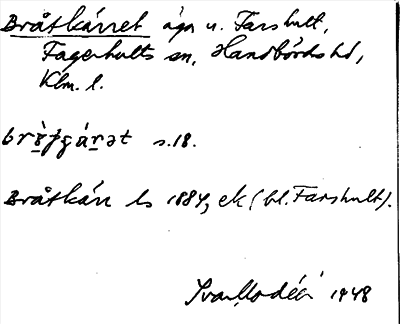 Bråtkärret äga u. Farshult,
Fagerhults sn, Handbörds hd,
Klm. l.
s. 18.
Bråtkärr ls 1884, ek (bl. Farshult).
Ivar Modéer 1948